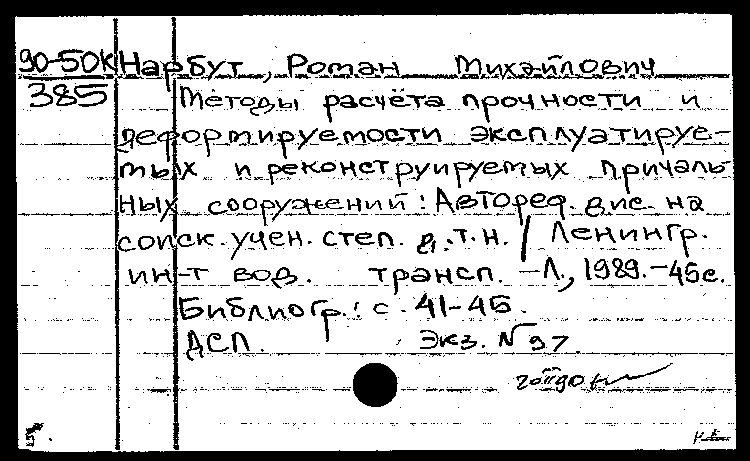 90-50К Нарбут, Роман Михайлович
385 Методы расчёта прочности и
деформируемости эксплуатируе-
мых и реконструируемых причаль-
ных сооружений: Автореф. дис. на
соиск. учен. степ. д.т.н. / Ленингр.
ин-т вод. трансп. – Л., 1989. – 45 с.
Библиогр.: с. 41-45.
ДСП. Экз. № 97
5.